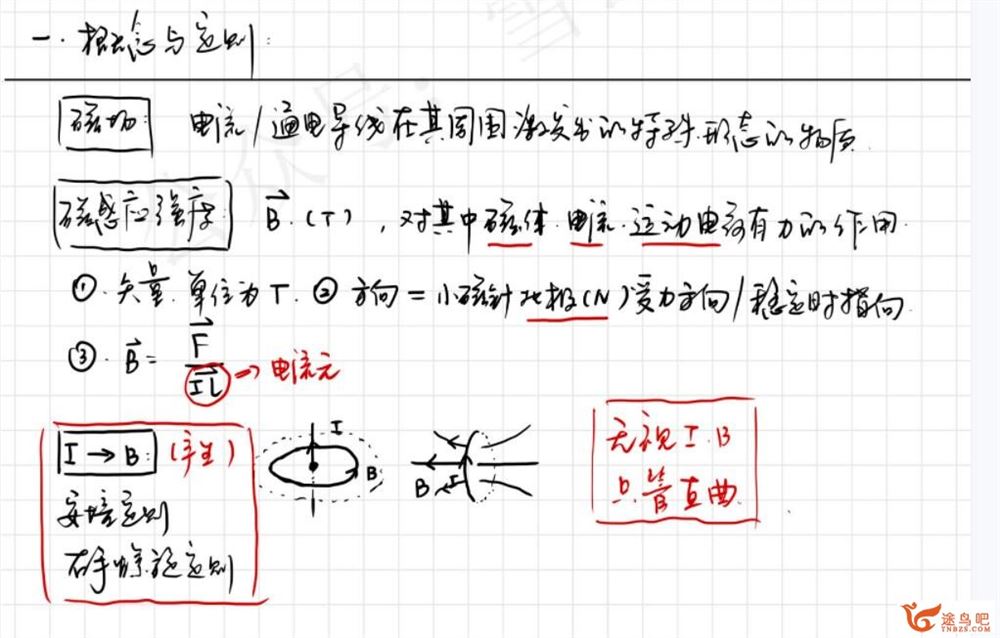 一. 概念与定则:
磁场: 电流/通电导线在其周围激发出的特殊形态的物质.
磁感应强度: B⃗.(T), 对其中磁体.电流.运动电荷有力的作用.
①.矢量.单位为T. ②方向=小磁针北极(N)受力方向/稳定时指向.
③. B⃗ = F⃗/IL⃗ ⇒ 电流元
I→B: (产生)
安培定则
右手螺旋定则
I
B
B
I
无视I.B
只管直曲.
公众号:
途鸟吧
TNBZS.COM